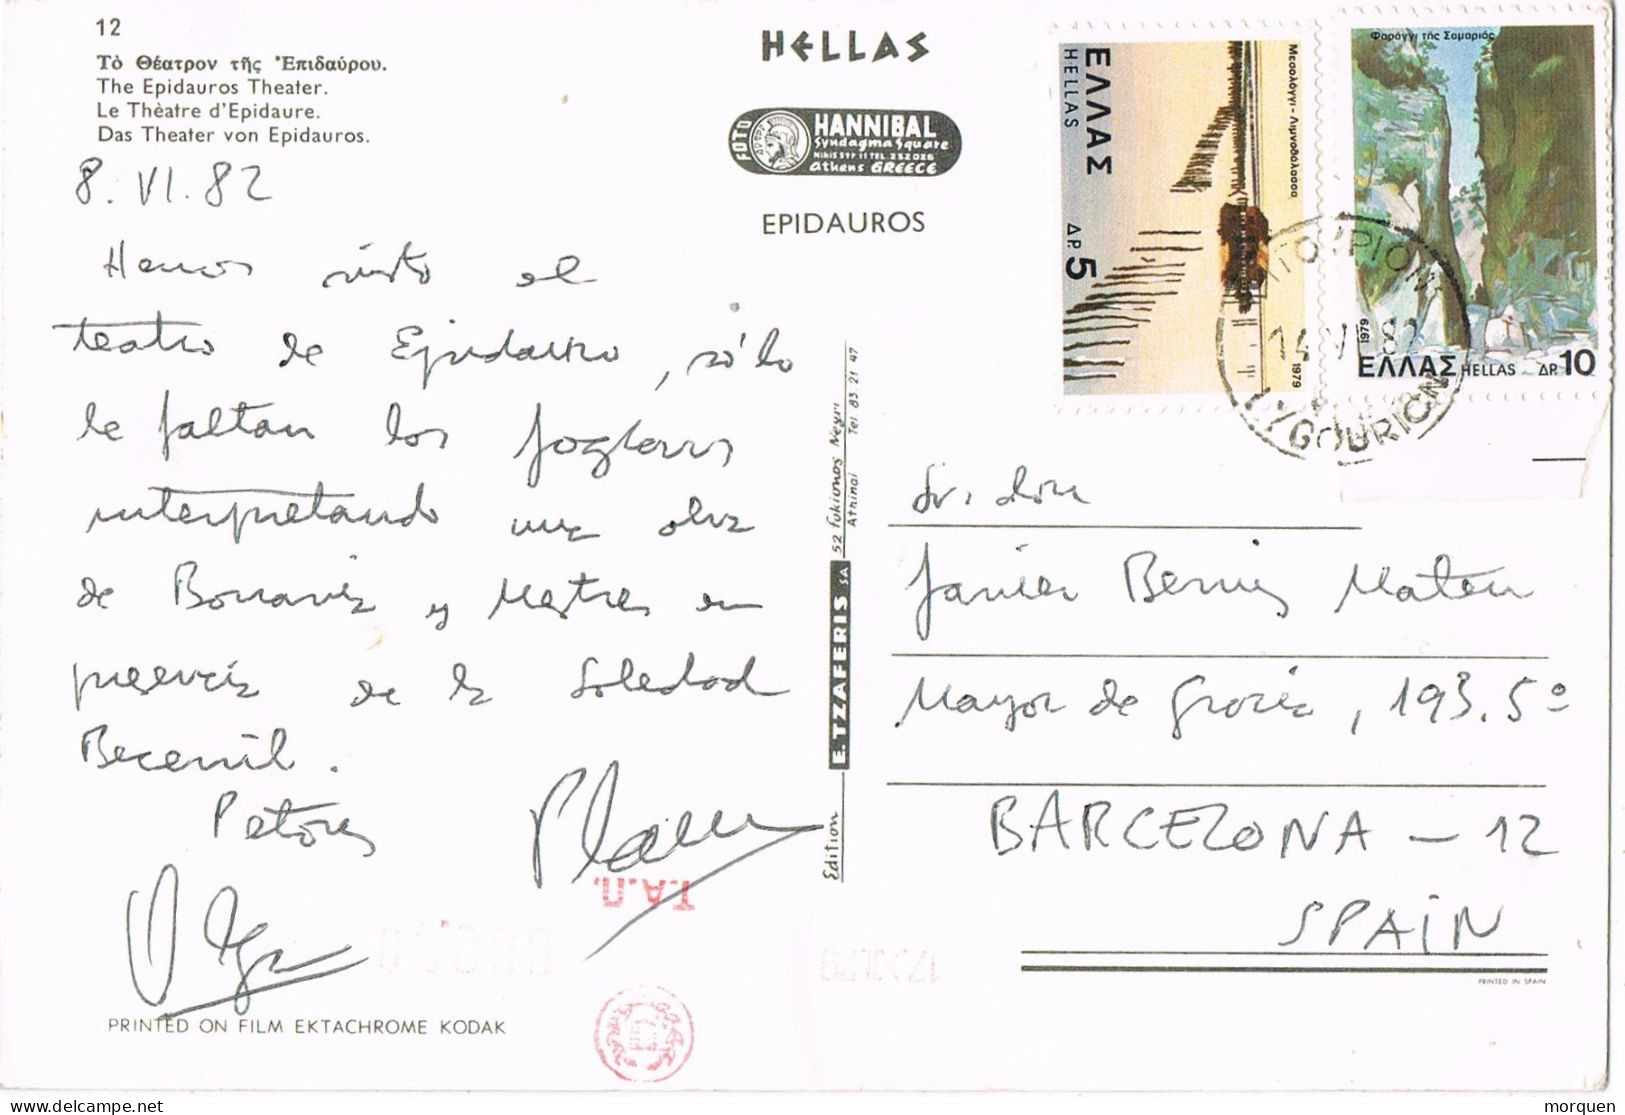 12
Τὸ Θέατρον τῆς Ἐπιδαύρου.
The Epidauros Theater.
Le Thèatre d'Epidaure.
Das Theater von Epidauros.
8. VI. 82
Hemos visto el
teatro de Epidauro, sólo
le faltan los Joglars
interpretando una obra
de Bonavia y Mestres en
presencia de la Soledad
Becerril.
Petons
Olga
HELLAS
FOTO
HANNIBAL
Syndagma Square
Nikis Str. 11 TEL. 232026
Athens GREECE
EPIDAUROS
Edition E. TZAFERIS SA 52 Fokionos Negri
Athinai Tel 83 21 47
ΕΛΛΑΣ
HELLAS
ΔΡ. 5
Μεσολόγγι - Λιμνοθάλασσα
1979
Φαράγγι τῆς Σαμαριᾶς
1979
ΕΛΛΑΣ HELLAS ΔΡ. 10
LYGOURION
Sr. don
Javier Mateu
Mayor de Gracia, 193. 5º
BARCELONA - 12
SPAIN
PRINTED IN SPAIN
Τ.Α.Π.
PRINTED ON FILM EKTACHROME KODAK
morquen